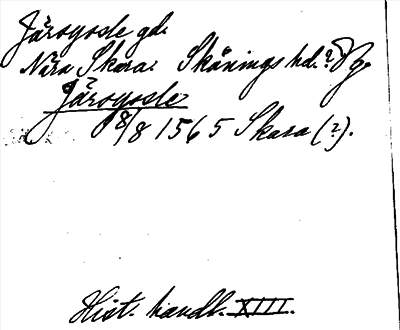 Järsgosle gd.
Nära Skara. Skånings hd.? Vg.
Järsgosle
18/8 1565 Skara (?).
Hist. handl. XIII.